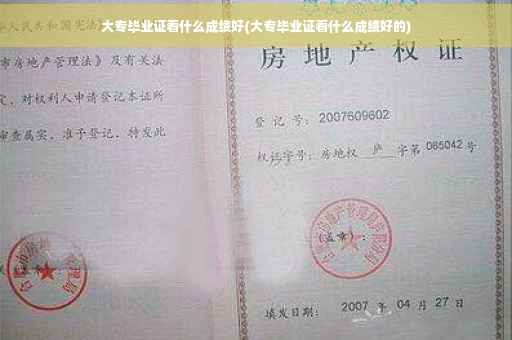 大专毕业证看什么成绩好(大专毕业证看什么成绩好的)
人民共和国宪法》
市房地产管理法》及有关法
定，对权利人申请登记本证所
审查属实，准予登记，特发此
房地产权证
登记号：2007609602
权证字号：房地权 庐 字第 065042 号
(盖章)：
填发日期：2007 年 04 月 27 日